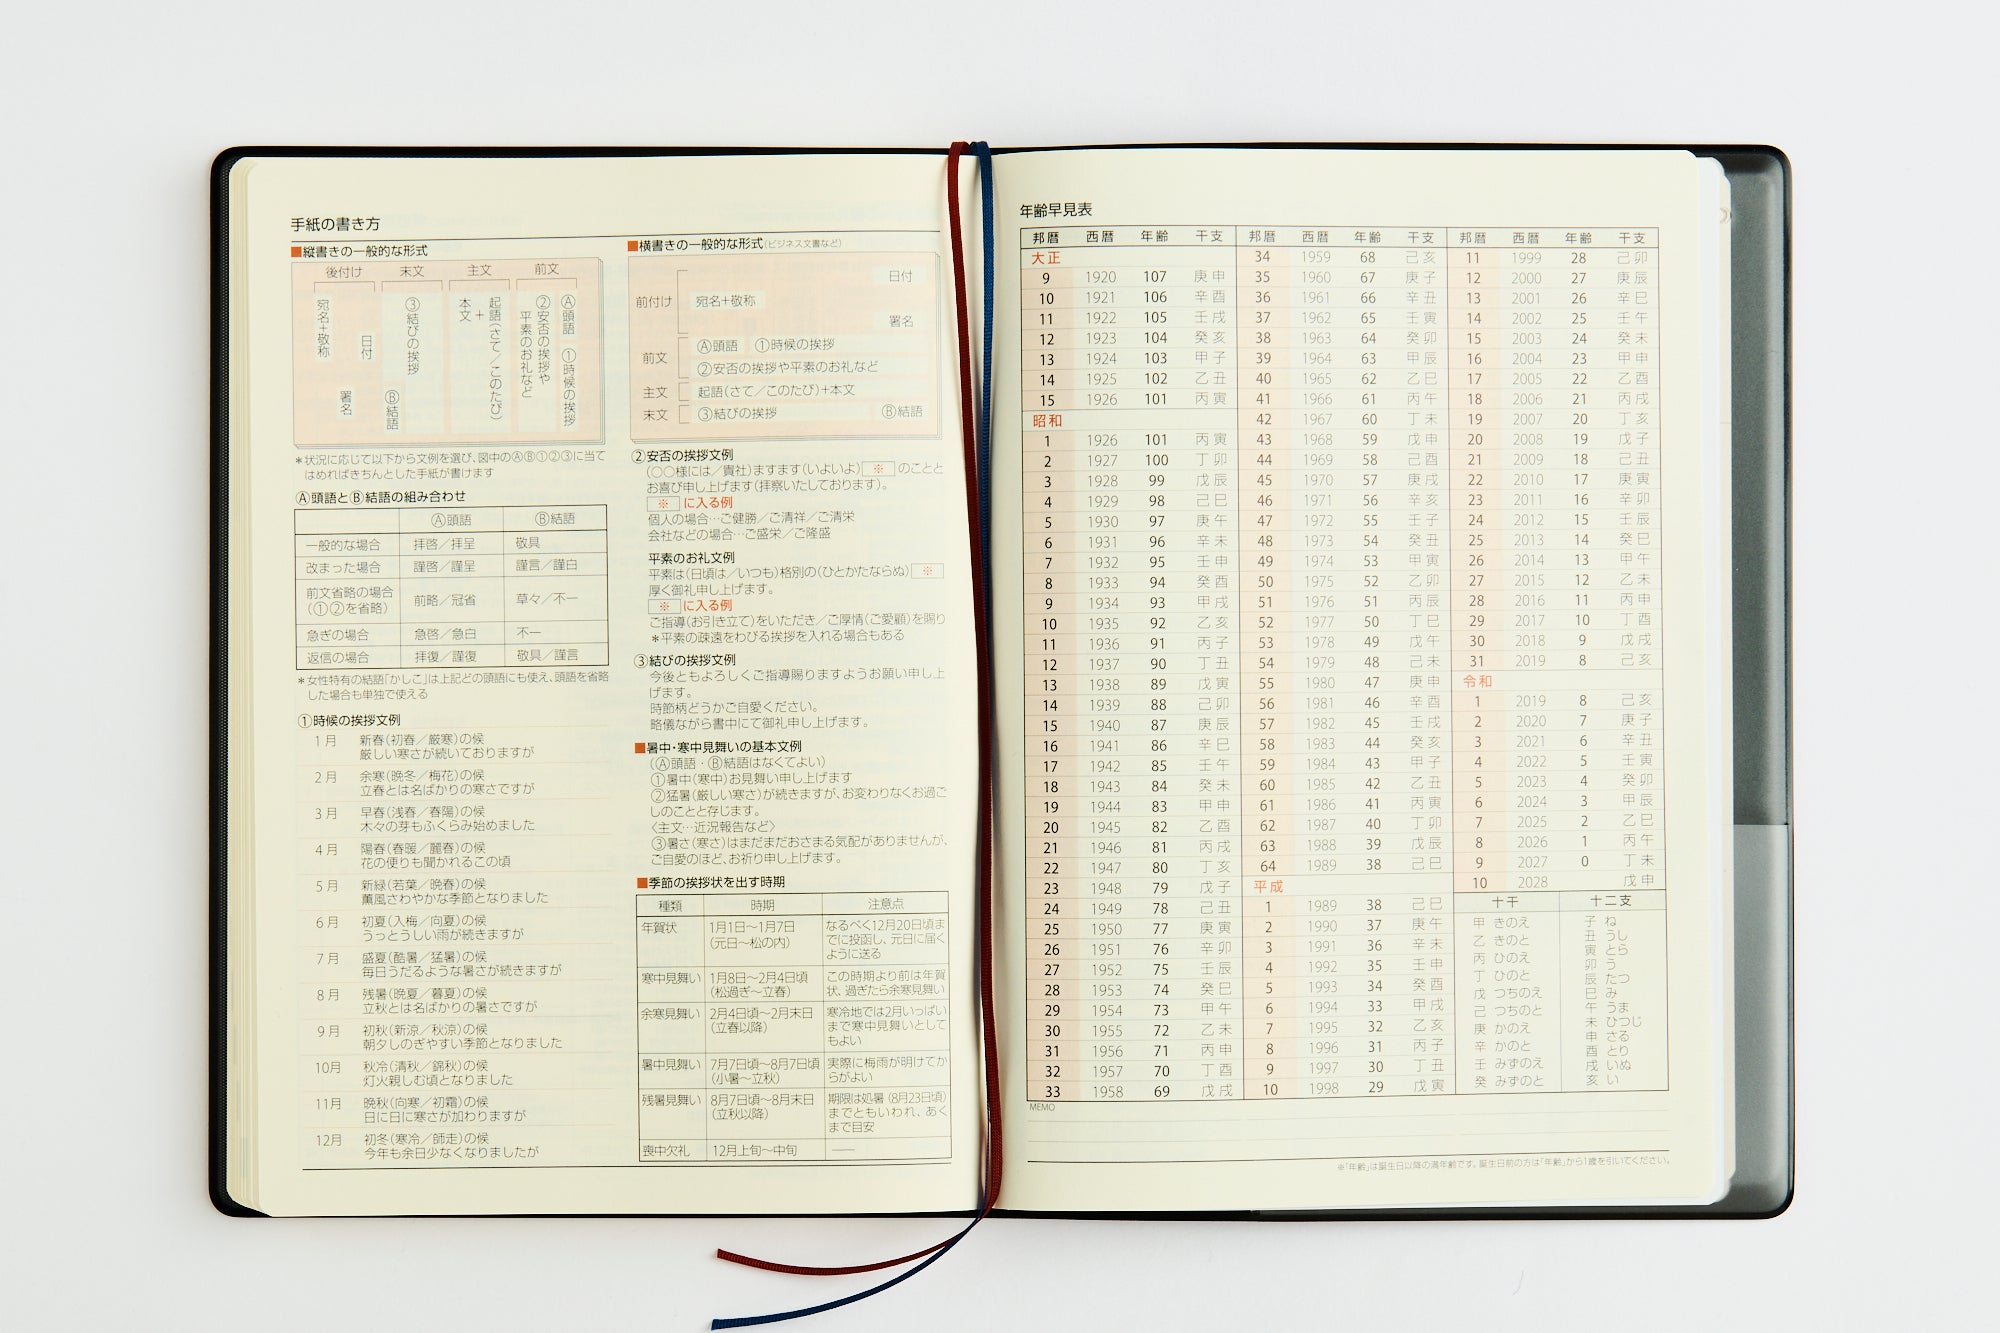 手紙の書き方
■縦書きの一般的な形式
後付け 末文 主文 前文
Ⓐ頭語 ①時候の挨拶
②安否の挨拶や
平素のお礼など
起語(さて／このたび)
＋
本文
③結びの挨拶
Ⓑ結語
日付
署名
宛名+敬称
＊状況に応じて以下から文例を選び、図中のⒶⒷ①②③に当て
はめればきちんとした手紙が書けます
Ⓐ頭語とⒷ結語の組み合わせ
Ⓐ頭語 Ⓑ結語
一般的な場合 拝啓／拝呈 敬具
改まった場合 謹啓／謹呈 謹言／謹白
前文省略の場合
(①②を省略) 前略／冠省 草々／不一
急ぎの場合 急啓／急白 不一
返信の場合 拝復／謹復 敬具／謹言
＊女性特有の結語「かしこ」は上記どの頭語にも使え、頭語を省略
した場合も単独で使える
①時候の挨拶文例
1月 新春(初春／厳寒)の候
厳しい寒さが続いておりますが
2月 余寒(晩冬／梅花)の候
立春とは名ばかりの寒さですが
3月 早春(浅春／春陽)の候
木々の芽もふくらみ始めました
4月 陽春(春暖／麗春)の候
花の便りも聞かれるこの頃
5月 新緑(若葉／晩春)の候
薫風さわやかな季節となりました
6月 初夏(入梅／向夏)の候
うっとうしい雨が続きますが
7月 盛夏(酷暑／猛暑)の候
毎日うだるような暑さが続きますが
8月 残暑(晩夏／暮夏)の候
立秋とは名ばかりの暑さですが
9月 初秋(新涼／秋涼)の候
朝夕しのぎやすい季節となりました
10月 秋冷(清秋／錦秋)の候
灯火親しむ頃となりました
11月 晩秋(向寒／初霜)の候
日に日に寒さが加わりますが
12月 初冬(寒冷／師走)の候
今年も余日少なくなりましたが
■横書きの一般的な形式(ビジネス文書など)
日付
前付け 宛名+敬称
署名
前文 Ⓐ頭語 ①時候の挨拶
②安否の挨拶や平素のお礼など
主文 起語(さて／このたび)+本文
末文 ③結びの挨拶 Ⓑ結語
②安否の挨拶文例
(○○様には／貴社)ますます(いよいよ) ※ のことと
お喜び申し上げます(拝察いたしております)。
※ に入る例
個人の場合…ご健勝／ご清祥／ご清栄
会社などの場合…ご盛栄／ご隆盛
平素のお礼文例
平素は(日頃は／いつも)格別の(ひとかたならぬ) ※
厚く御礼申し上げます。
※ に入る例
ご指導(お引き立て)をいただき／ご厚情(ご愛顧)を賜り
＊平素の疎遠をわびる挨拶を入れる場合もある
③結びの挨拶文例
今後ともよろしくご指導賜りますようお願い申し上
げます。
時節柄どうかご自愛ください。
略儀ながら書中にて御礼申し上げます。
■暑中・寒中見舞いの基本文例
(Ⓐ頭語・Ⓑ結語はなくてよい)
①暑中(寒中)お見舞い申し上げます
②猛暑(厳しい寒さ)が続きますが、お変わりなくお過ご
しのことと存じます。
〈主文…近況報告など〉
③暑さ(寒さ)はまだまだおさまる気配がありませんが、
ご自愛のほど、お祈り申し上げます。
■季節の挨拶状を出す時期
種類 時期 注意点
年賀状 1月1日～1月7日
(元日～松の内) なるべく12月20日頃ま
でに投函し、元日に届く
ように送る
寒中見舞い 1月8日～2月4日頃
(松過ぎ～立春) この時期より前は年賀
状、過ぎたら余寒見舞い
余寒見舞い 2月4日頃～2月末日
(立春以降) 寒冷地では2月いっぱい
まで寒中見舞いとして
もよい
暑中見舞い 7月7日頃～8月7日頃
(小暑～立秋) 実際に梅雨が明けてか
らがよい
残暑見舞い 8月7日頃～8月末日
(立秋以降) 期限は処暑(8月23日頃)
までともいわれ、あく
まで目安
喪中欠礼 12月上旬～中旬 ――
年齢早見表
邦暦 西暦 年齢 干支
大正
9 1920 107 庚申
10 1921 106 辛酉
11 1922 105 壬戌
12 1923 104 癸亥
13 1924 103 甲子
14 1925 102 乙丑
15 1926 101 丙寅
昭和
1 1926 101 丙寅
2 1927 100 丁卯
3 1928 99 戊辰
4 1929 98 己巳
5 1930 97 庚午
6 1931 96 辛未
7 1932 95 壬申
8 1933 94 癸酉
9 1934 93 甲戌
10 1935 92 乙亥
11 1936 91 丙子
12 1937 90 丁丑
13 1938 89 戊寅
14 1939 88 己卯
15 1940 87 庚辰
16 1941 86 辛巳
17 1942 85 壬午
18 1943 84 癸未
19 1944 83 甲申
20 1945 82 乙酉
21 1946 81 丙戌
22 1947 80 丁亥
23 1948 79 戊子
24 1949 78 己丑
25 1950 77 庚寅
26 1951 76 辛卯
27 1952 75 壬辰
28 1953 74 癸巳
29 1954 73 甲午
30 1955 72 乙未
31 1956 71 丙申
32 1957 70 丁酉
33 1958 69 戊戌
邦暦 西暦 年齢 干支
34 1959 68 己亥
35 1960 67 庚子
36 1961 66 辛丑
37 1962 65 壬寅
38 1963 64 癸卯
39 1964 63 甲辰
40 1965 62 乙巳
41 1966 61 丙午
42 1967 60 丁未
43 1968 59 戊申
44 1969 58 己酉
45 1970 57 庚戌
46 1971 56 辛亥
47 1972 55 壬子
48 1973 54 癸丑
49 1974 53 甲寅
50 1975 52 乙卯
51 1976 51 丙辰
52 1977 50 丁巳
53 1978 49 戊午
54 1979 48 己未
55 1980 47 庚申
56 1981 46 辛酉
57 1982 45 壬戌
58 1983 44 癸亥
59 1984 43 甲子
60 1985 42 乙丑
61 1986 41 丙寅
62 1987 40 丁卯
63 1988 39 戊辰
64 1989 38 己巳
平成
1 1989 38 己巳
2 1990 37 庚午
3 1991 36 辛未
4 1992 35 壬申
5 1993 34 癸酉
6 1994 33 甲戌
7 1995 32 乙亥
8 1996 31 丙子
9 1997 30 丁丑
10 1998 29 戊寅
邦暦 西暦 年齢 干支
11 1999 28 己卯
12 2000 27 庚辰
13 2001 26 辛巳
14 2002 25 壬午
15 2003 24 癸未
16 2004 23 甲申
17 2005 22 乙酉
18 2006 21 丙戌
19 2007 20 丁亥
20 2008 19 戊子
21 2009 18 己丑
22 2010 17 庚寅
23 2011 16 辛卯
24 2012 15 壬辰
25 2013 14 癸巳
26 2014 13 甲午
27 2015 12 乙未
28 2016 11 丙申
29 2017 10 丁酉
30 2018 9 戊戌
31 2019 8 己亥
令和
1 2019 8 己亥
2 2020 7 庚子
3 2021 6 辛丑
4 2022 5 壬寅
5 2023 4 癸卯
6 2024 3 甲辰
7 2025 2 乙巳
8 2026 1 丙午
9 2027 0 丁未
10 2028 戊申
十干
甲 きのえ
乙 きのと
丙 ひのえ
丁 ひのと
戊 つちのえ
己 つちのと
庚 かのえ
辛 かのと
壬 みずのえ
癸 みずのと
十二支
子 ね
丑 うし
寅 とら
卯 う
辰 たつ
巳 み
午 うま
未 ひつじ
申 さる
酉 とり
戌 いぬ
亥 い
MEMO
※「年齢」は誕生日以降の満年齢です。誕生日前の方は「年齢」から1歳を引いてください。